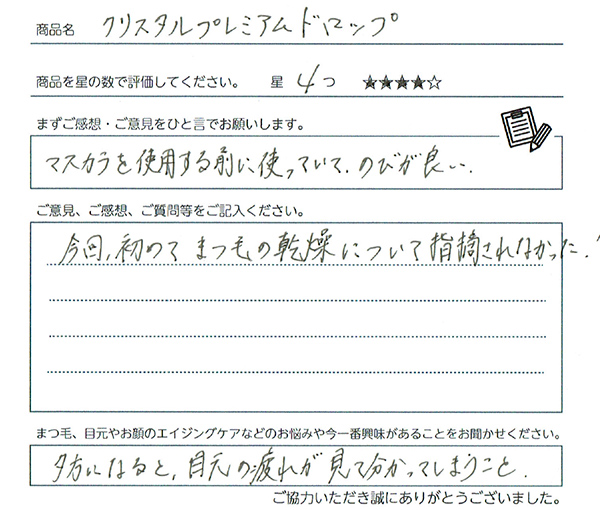 商品名 クリスタルプレミアムドロップ
商品を星の数で評価してください。 星 4 つ ★★★★☆
まずご感想・ご意見をひと言でお願いします。
マスカラを使用する前に使っていて、のびが良い.
ご意見、ご感想、ご質問等をご記入ください。
今回、初めてまつ毛の乾燥について指摘されなかった.
まつ毛、目元やお顔のエイジングケアなどのお悩みや今一番興味があることをお聞かせください。
夕方になると、目元の疲れが見て分かってしまうこと.
ご協力いただき誠にありがとうございました。